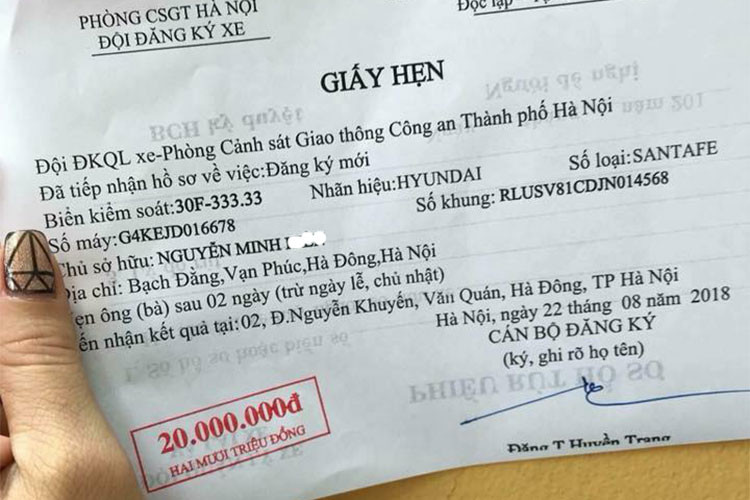 PHÒNG CSGT HÀ NỘI
ĐỘI ĐĂNG KÝ XE
Độc lập
GIẤY HẸN
Đội ĐKQL xe-Phòng Cảnh sát Giao thông Công an Thành phố Hà Nội
Đã tiếp nhận hồ sơ về việc:Đăng ký mới
Biển kiểm soát:30F-333.33 Nhãn hiệu:HYUNDAI Số loại:SANTAFE
Số máy:G4KEJD016678 Số khung: RLUSV81CDJN014568
Chủ sở hữu: NGUYỄN MINH
Địa chỉ: Bạch Đằng,Vạn Phúc,Hà Đông,Hà Nội
ẹn ông (bà) sau 02 ngày (trừ ngày lễ, chủ nhật)
ến nhận kết quả tại: 02, Đ.Nguyễn Khuyến, Văn Quán, Hà Đông, TP Hà Nội
Hà Nội, ngày 22 tháng 08 năm 2018
CÁN BỘ ĐĂNG KÝ
(ký, ghi rõ họ tên)
Đặng T Huyền Trang
20.000.000đ
HAI MƯƠI TRIỆU ĐỒNG